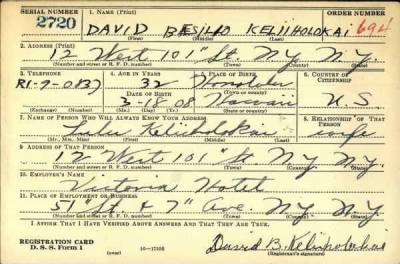 SERIAL NUMBER 1. NAME (Print) ORDER NUMBER
2720 DAVID BASILIO KELIIHOLOKAI 694
(First) (Middle) (Last)
2. ADDRESS (Print)
12 West 101st St. N.Y. N.Y.
(Number and street or R. F. D. number) (Town) (County) (State)
3. TELEPHONE 4. AGE IN YEARS 5. PLACE OF BIRTH 6. COUNTRY OF CITIZENSHIP
RI-9-0837 32 Honolulu
DATE OF BIRTH (Town or county)
3-18-08 Hawaii U.S.
(Exchange) (Number) (Mo.) (Day) (Yr.) (State or country)
7. NAME OF PERSON WHO WILL ALWAYS KNOW YOUR ADDRESS 8. RELATIONSHIP OF THAT PERSON
Keliiholokai wife
(Mr., Mrs., Miss) (First) (Middle) (Last)
9. ADDRESS OF THAT PERSON
12 West 101st St N.Y. N.Y.
(Number and street or R. F. D. number) (Town) (County) (State)
10. EMPLOYER'S NAME
Victoria Hotel
11. PLACE OF EMPLOYMENT OR BUSINESS
51st St. & 7th Ave. N.Y. N.Y.
(Number and street or R. F. D. number) (Town) (County) (State)
I AFFIRM THAT I HAVE VERIFIED ABOVE ANSWERS AND THAT THEY ARE TRUE.
REGISTRATION CARD
D. S. S. Form 1 16-17105 David B. Keliiholokai
(over) (Registrant's signature)